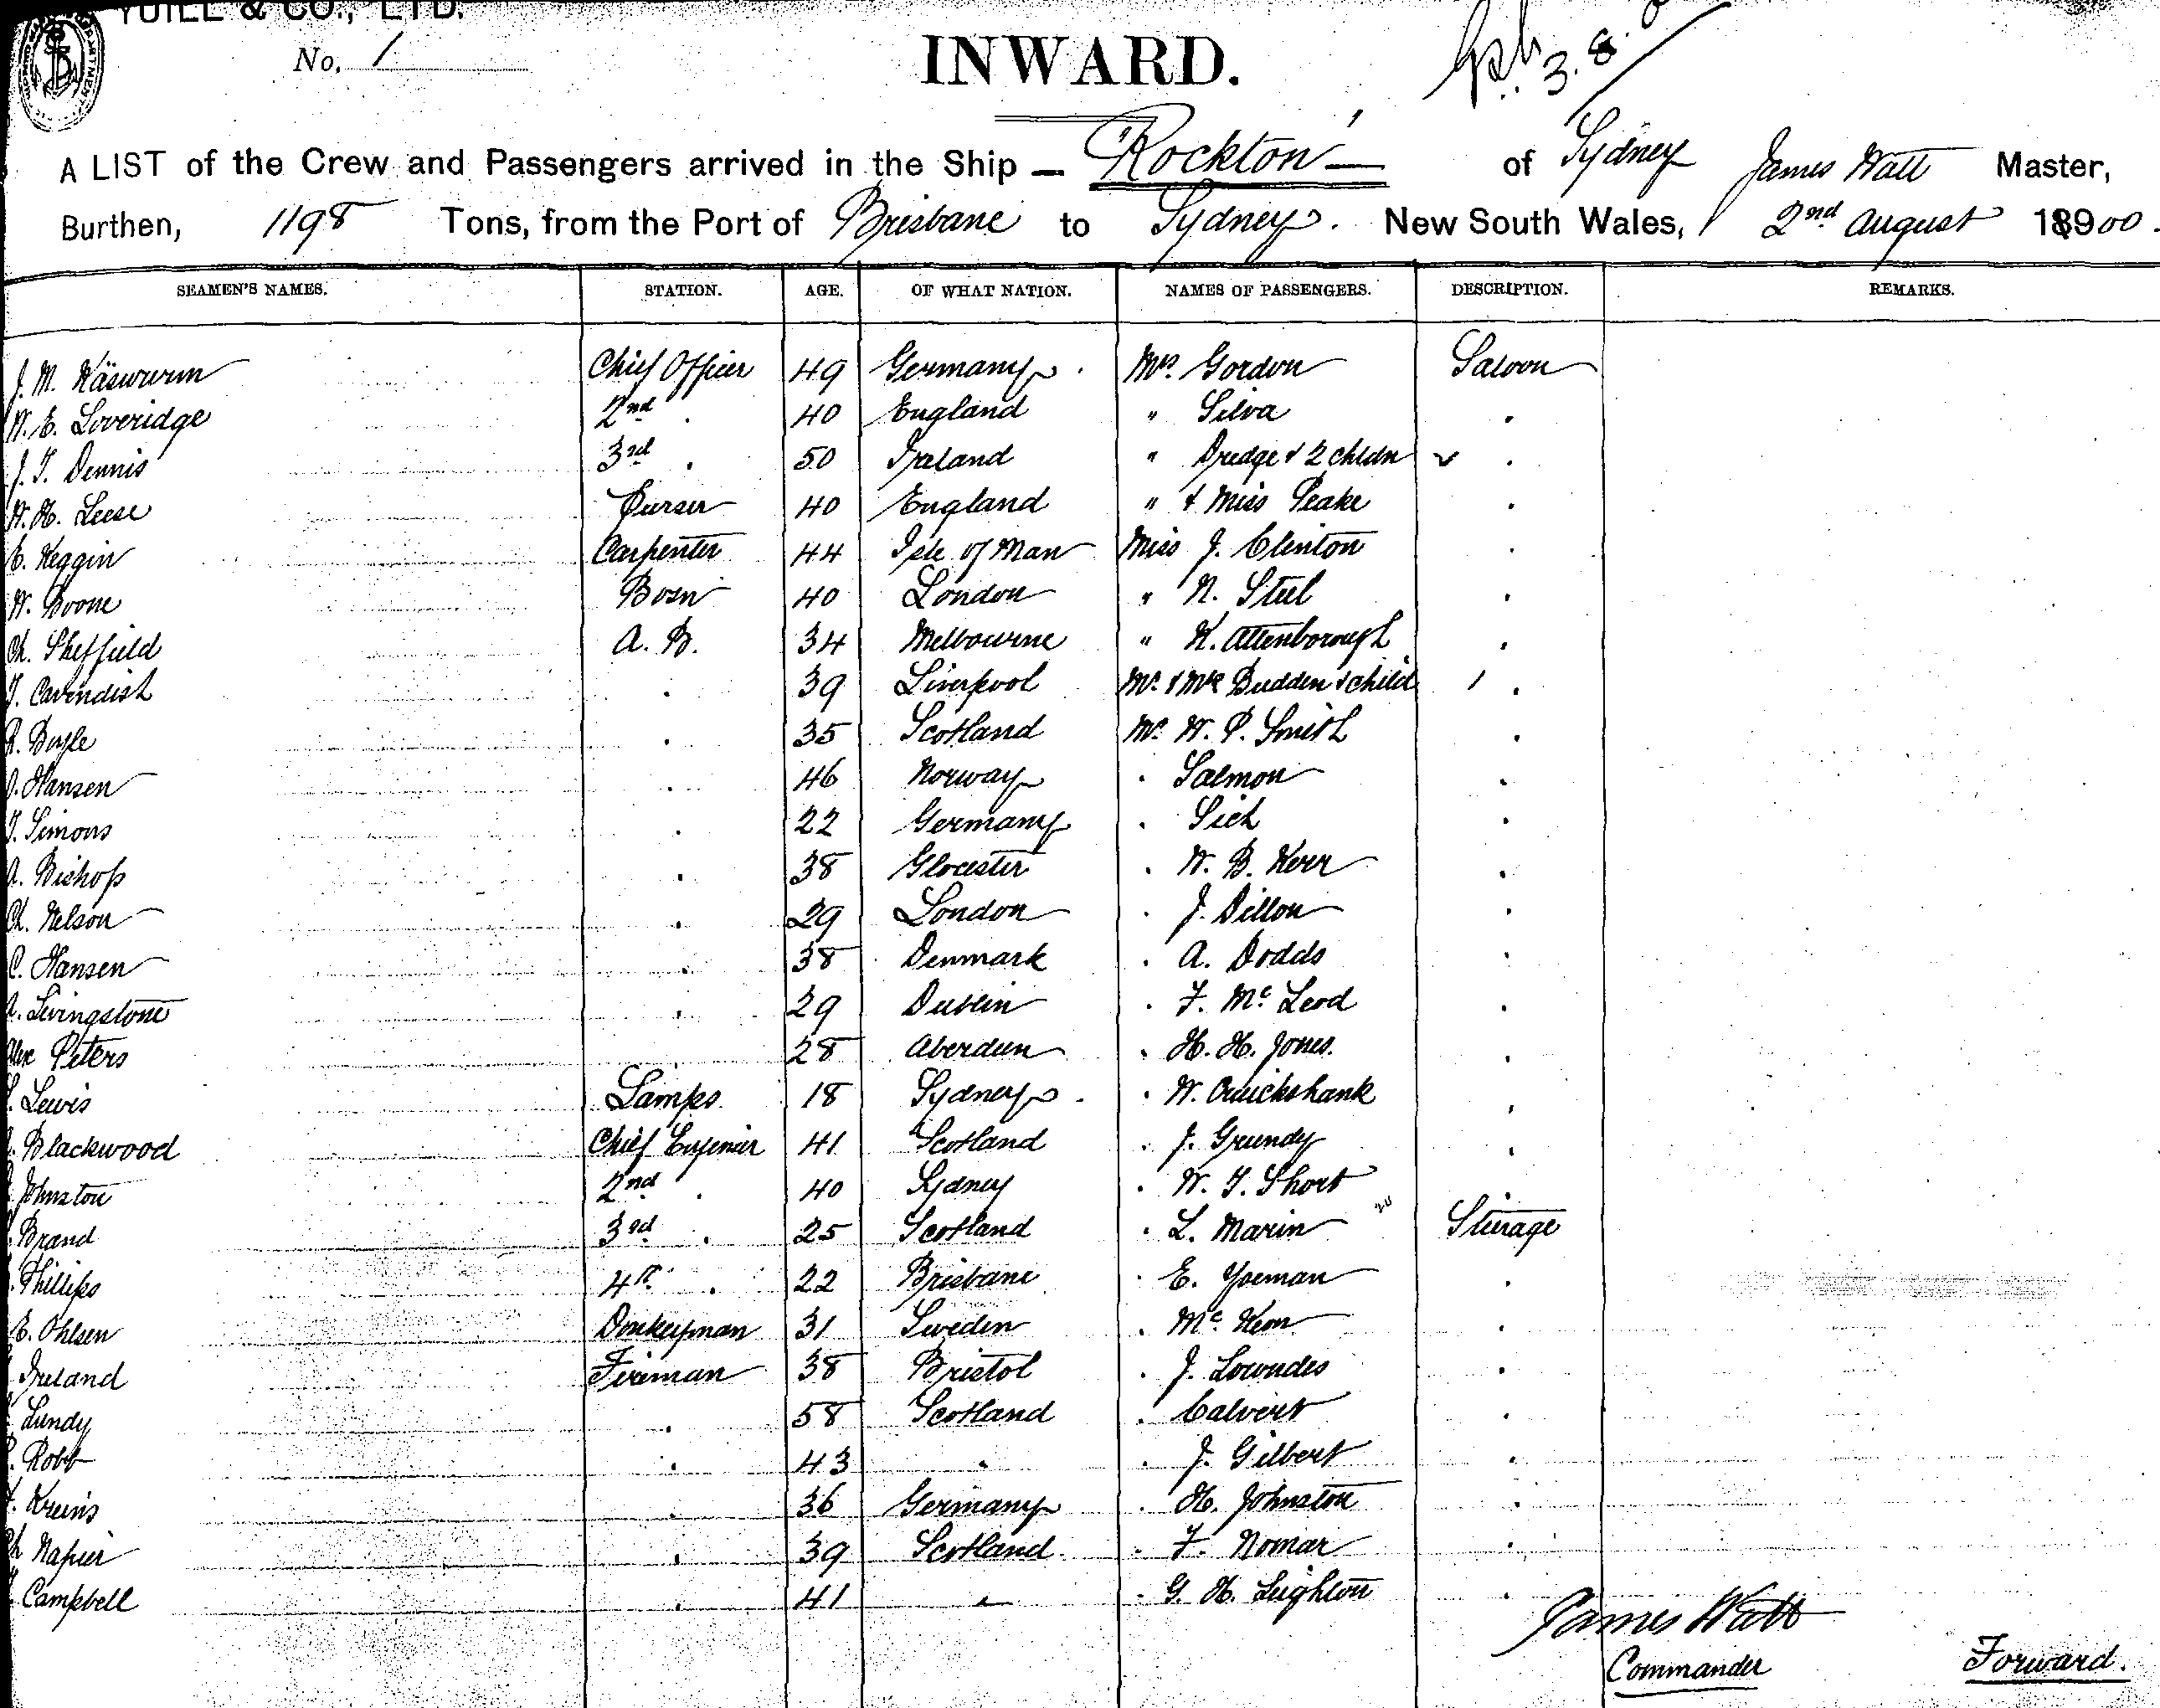 YUILL & CO., LTD.
No. 1
INWARD.
3.8.
A LIST of the Crew and Passengers arrived in the Ship — "Rockton" — of Sydney James Watt Master,
Burthen, 1198 Tons, from the Port of Brisbane to Sydney. New South Wales, 2nd August 18900.
SEAMEN'S NAMES. STATION. AGE. OF WHAT NATION. NAMES OF PASSENGERS. DESCRIPTION. REMARKS.
J. M. Käswurm Chief Officer 49 Germany. Mrs. Gordon Saloon
W. E. Loveridge 2nd . 40 England " Silva .
J. T. Dennis 3rd . 50 Ireland " Dredge & 2 chldn .
W. H. Leese Purser 40 England " & Miss Peake .
E. Keggin Carpenter 44 Isle of Man Miss J. Clinton .
W. Boone Bosn 40 London " N. Steel .
Ch. Sheffield A. B. 34 Melbourne " K. Attenborough .
T. Cavendish . 39 Liverpool Mr. & Mrs Budden & child 1 .
R. Boyle . 35 Scotland Mr. W. P. Smith .
O. Hansen . 46 Norway . Salmon .
T. Simons . 22 Germany . Sich .
A. Bishop . 38 Glocester . W. B. Kerr .
Ch. Nelson . 29 London . J. Dillon .
C. Hansen . 38 Denmark . A. Dodds .
A. Livingstone . 29 Dublin . F. Mc. Leod .
Alex Peters 28 Aberdeen . H. H. Jones. .
Lewis Lamps 18 Sydney. . W. Cruickshank .
Blackwood Chief Engineer 41 Scotland . J. Grundy .
Johnston 2nd . 40 Sydney . W. T. Short .
Brand 3rd . 25 Scotland . L. Marin Steerage
Phillips 4th . 22 Brisbane . E. Yoeman .
E. Ohlsen Donkeyman 31 Sweden . Mc. Keon .
Ireland Fireman 38 Bristol . J. Lowndes .
Lundy . 58 Scotland . Calvert .
Robb . 43 " . J. Gilbert .
Kreins . 36 Germany . H. Johnston .
Ch Napier . 39 Scotland . F. Nomar .
Campbell . 41 " . G. H. Leighton .
James Watt
Commander Forward.